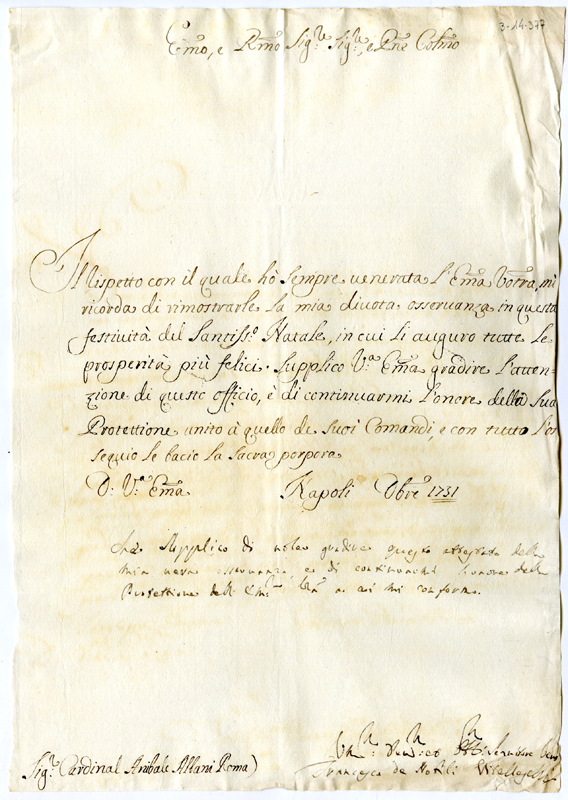 3-14-377
Em̃o, e Rm̃o Sig.re Sig.re, e Prñe Colm̃o
Il Rispetto con il quale hò sempre venerata l'Em̃a Vostra, mi
ricorda di rimostrarle la mia divota osservanza in questa
festività del Santiss.o Natale, in cui li auguro tutte le
prosperità più felici. Supplico V.a Em̃a gradire l'atten-
zione di questo officio, è di continuarmi l'onore della Sua
Protettione unito à quello de suoi Comandi, e con tutto l'os
sequio le bacio la sacra porpora
D. V.a Em̃a Napoli Xbre 1731
Supplico di gradire questo della
mia vera osservanza e di l'onore della
Protettione dell' Em.
Sig.re Cardinal Anibale Albani Roma)
Francesco de Nobili Vitelleschi